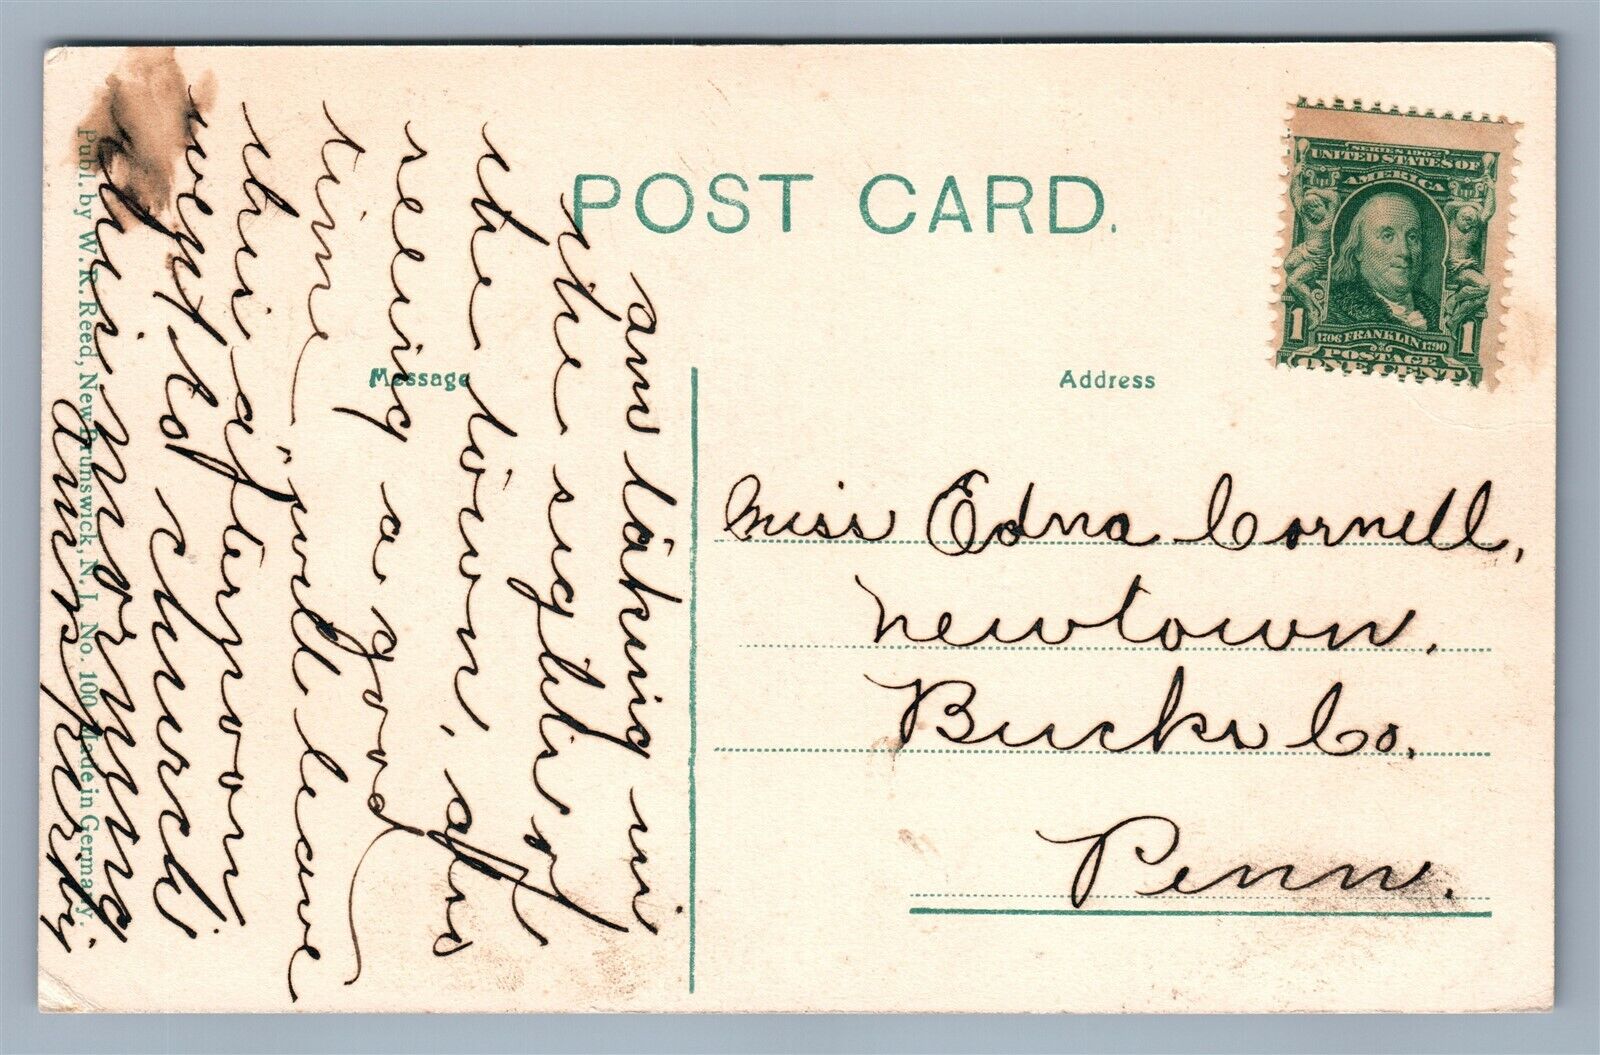 POST CARD.
SERIES 1902
UNITED STATES OF
AMERICA
1706 FRANKLIN 1790
1 1
POSTAGE
ONE CENT
Message
Address
am taking in
the sights of
the town, also
seeing a good
time will leave
this afternoon
went to church
this morning
Miss Edna Cornell,
Newtown,
Bucks Co.
Penn.
Publ. by W. R. Reed, New Brunswick, N. J. No. 100 Made in Germany.